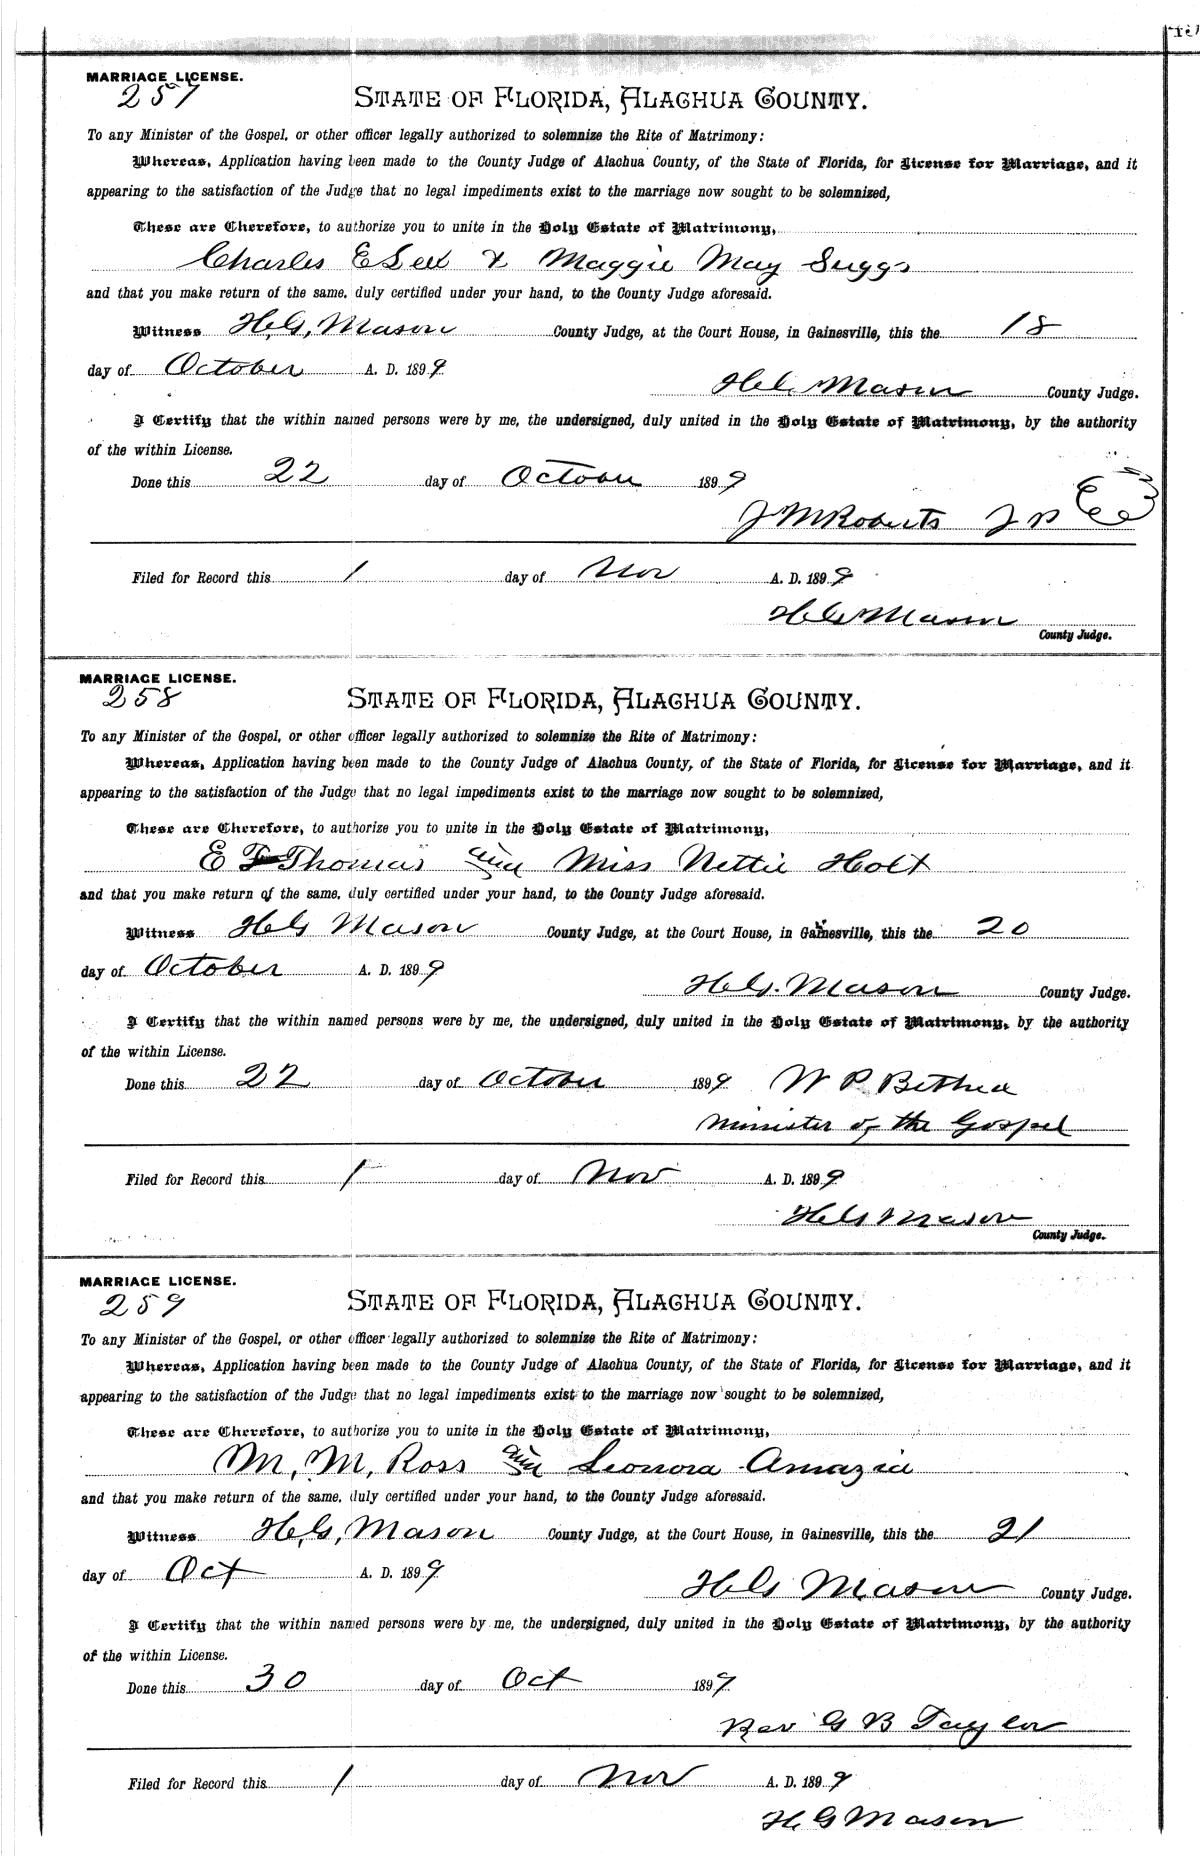 MARRIAGE LICENSE.
257
STATE OF FLORIDA, ALACHUA COUNTY.
To any Minister of the Gospel, or other officer legally authorized to solemnize the Rite of Matrimony:
Whereas, Application having been made to the County Judge of Alachua County, of the State of Florida, for License for Marriage, and it
appearing to the satisfaction of the Judge that no legal impediments exist to the marriage now sought to be solemnized,
These are Therefore, to authorize you to unite in the Holy Estate of Matrimony,
Charles E Lee & Maggie May Suggs
and that you make return of the same, duly certified under your hand, to the County Judge aforesaid.
Witness H.G. Mason County Judge, at the Court House, in Gainesville, this the 18
day of October A. D. 1899
H.G. Mason County Judge.
I Certify that the within named persons were by me, the undersigned, duly united in the Holy Estate of Matrimony, by the authority
of the within License.
Done this 22 day of October 1899
J M Roberts J P
Filed for Record this 1 day of Nov A. D. 1899
H G Mason
County Judge.
MARRIAGE LICENSE.
258
STATE OF FLORIDA, ALACHUA COUNTY.
To any Minister of the Gospel, or other officer legally authorized to solemnize the Rite of Matrimony:
Whereas, Application having been made to the County Judge of Alachua County, of the State of Florida, for License for Marriage, and it
appearing to the satisfaction of the Judge that no legal impediments exist to the marriage now sought to be solemnized,
These are Therefore, to authorize you to unite in the Holy Estate of Matrimony,
E Thomas and Miss Nettie Holt
and that you make return of the same, duly certified under your hand, to the County Judge aforesaid.
Witness H G Mason County Judge, at the Court House, in Gainesville, this the 20
day of October A. D. 1899
H G. Mason County Judge.
I Certify that the within named persons were by me, the undersigned, duly united in the Holy Estate of Matrimony, by the authority
of the within License.
Done this 22 day of October 1899 W P Bethea
Minister of the Gospel
Filed for Record this 1 day of Nov A. D. 1899
H G Mason
County Judge.
MARRIAGE LICENSE.
259
STATE OF FLORIDA, ALACHUA COUNTY.
To any Minister of the Gospel, or other officer legally authorized to solemnize the Rite of Matrimony:
Whereas, Application having been made to the County Judge of Alachua County, of the State of Florida, for License for Marriage, and it
appearing to the satisfaction of the Judge that no legal impediments exist to the marriage now sought to be solemnized,
These are Therefore, to authorize you to unite in the Holy Estate of Matrimony,
M, M, Ross and Leonora Amazie
and that you make return of the same, duly certified under your hand, to the County Judge aforesaid.
Witness H,G, Mason County Judge, at the Court House, in Gainesville, this the 21
day of Oct A. D. 1899
H G Mason County Judge.
I Certify that the within named persons were by me, the undersigned, duly united in the Holy Estate of Matrimony, by the authority
of the within License.
Done this 30 day of Oct 1899
Rev G B Taylor
Filed for Record this 1 day of Nov A. D. 1899
H G Mason